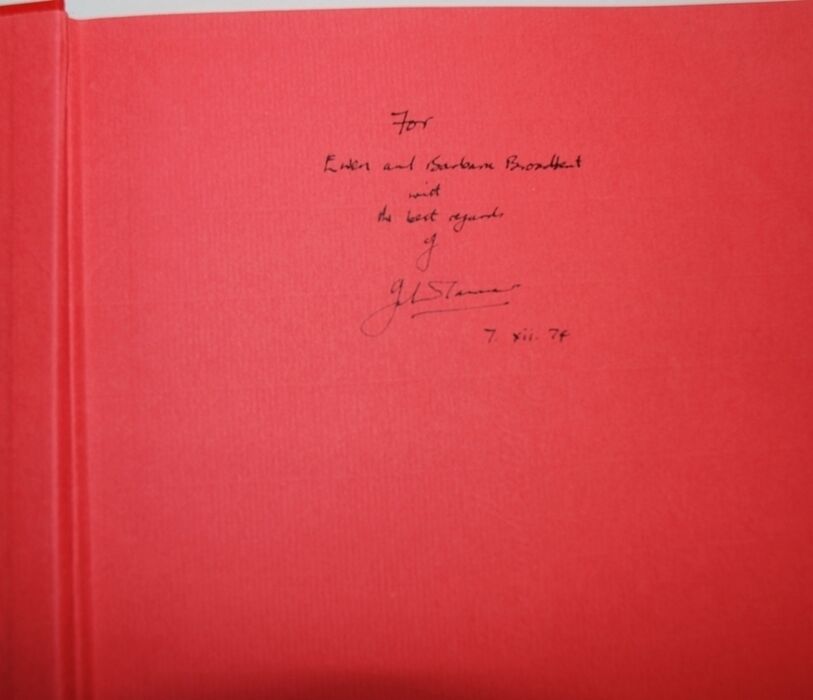 For
Ewen and Barbara Broadbent
with
the best regards
of
7. xii. 74